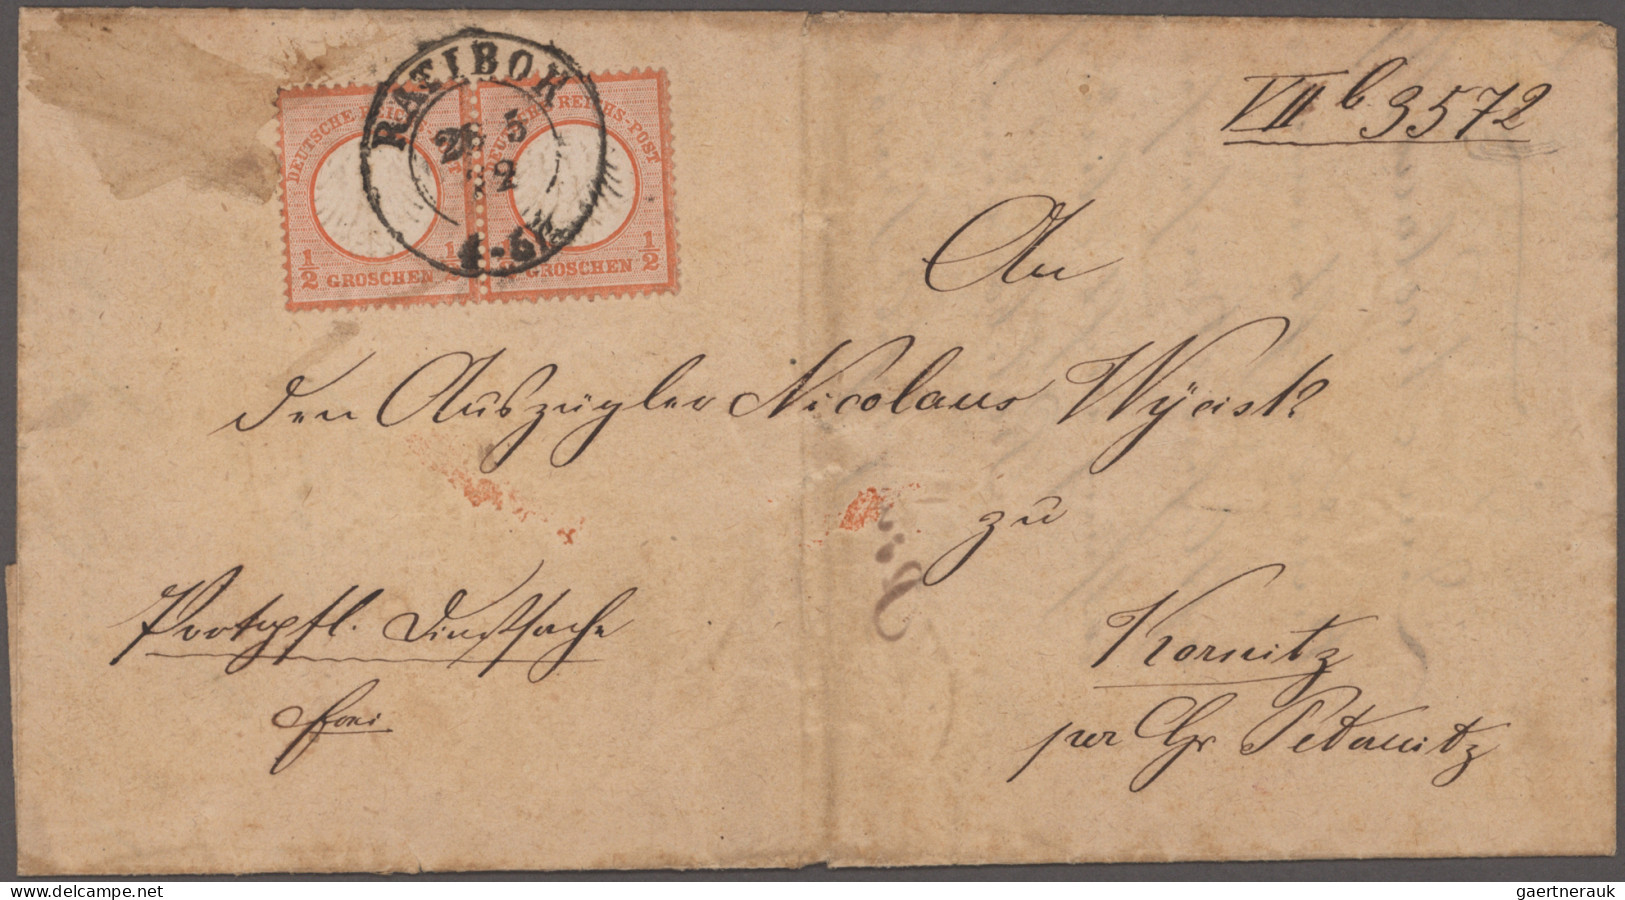 VII b 3572
RATIBOR
26 5
4-5
DEUTSCHE REICHS-POST
1/2 GROSCHEN 1/2
DEUTSCHE REICHS-POST
1/2 GROSCHEN 1/2
An
den Auszügler Nicolaus Wÿcisk
zu
Portopfl. Dienstsache
Kornitz
per Gr Petrowitz
delcampe.net
gaertnerauk